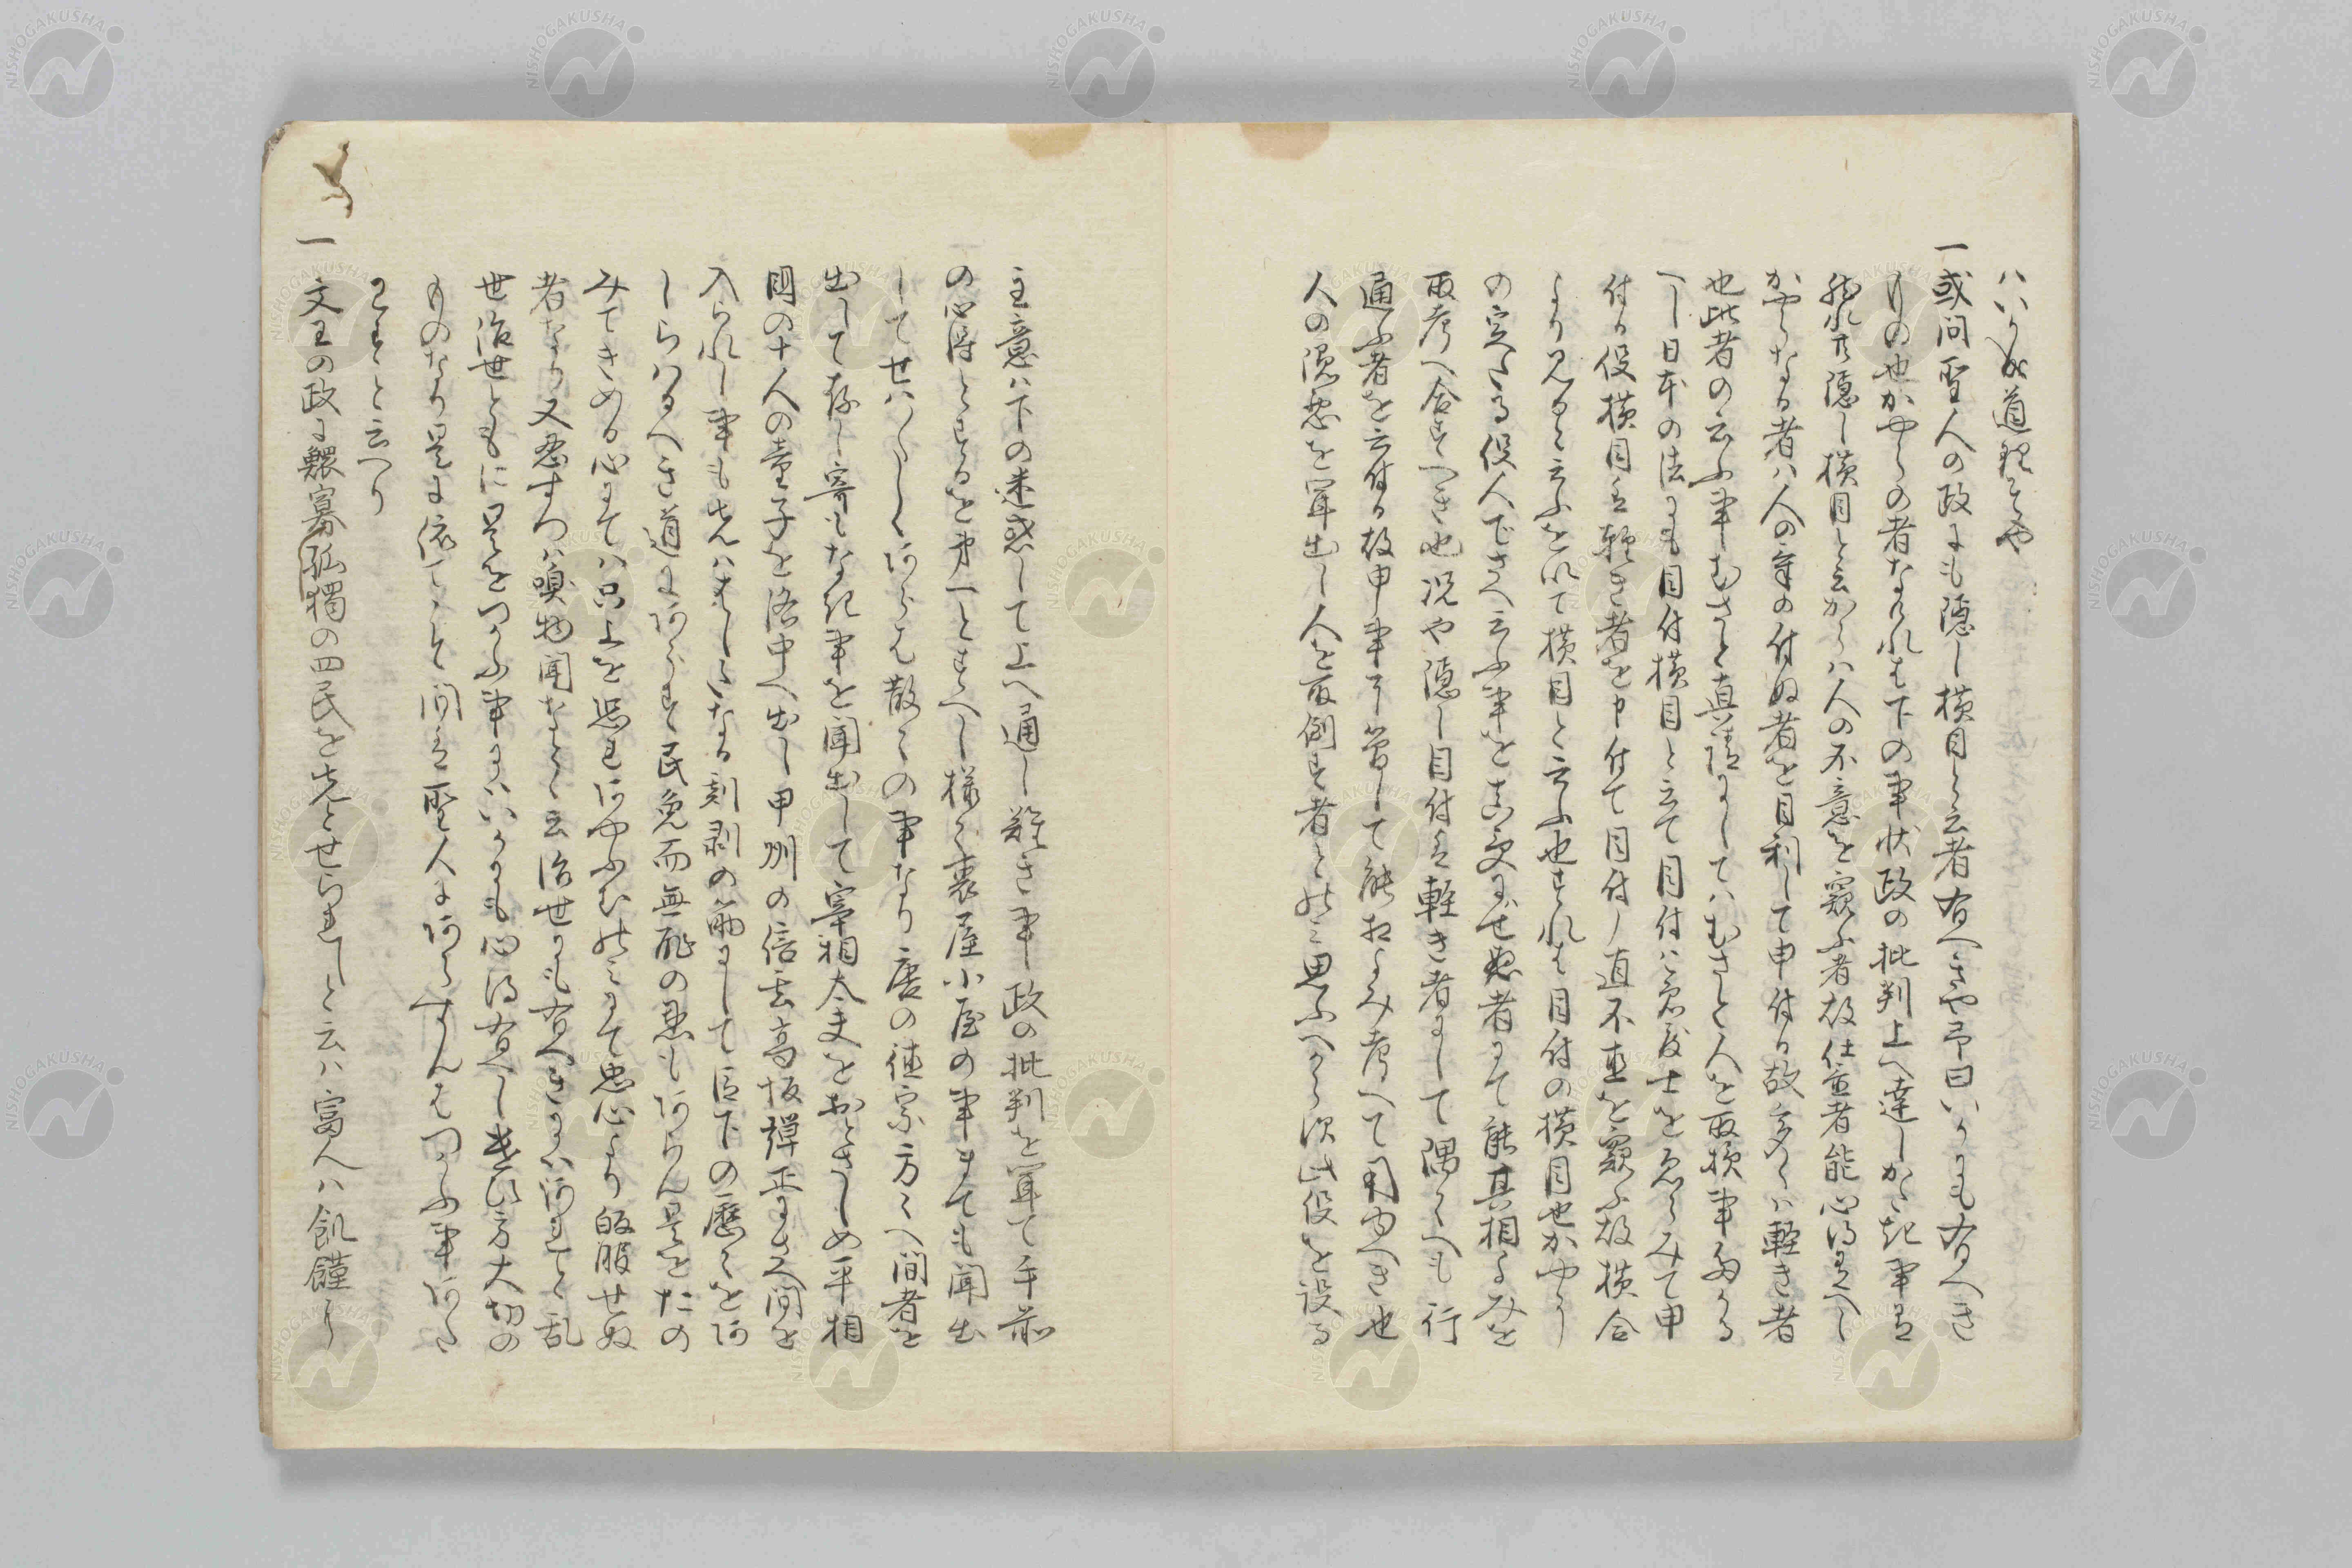 ハいかなる道理そや
一或問聖人の政にも隠し横目と云者有へきや予曰いかにも有へき
もの也かやうの者なけれは下の事状政の批判上へ達しかたき事有
然れ共隠し横目と云からハ人の不意を窺ふ者故仕置者能心得有へし
かやうなる者ハ人の気の付ぬ者を目利して申付る故多くハ軽き者
也此者の云ふ事むさと真請にしてハむさと人を取損事有
へし日本の法にも目付横目と立て目付ハ
付る役横目ハ軽き者を申付て目付ノ直不直を窺ふ故横合
より見ると云ふを以て横目と云ふ也されは目付の横目也かやうし
の定たる役人でさへ云ふ事を せぬ者にて能其相よみを
取考へ合すへき也況や隠し目付ハ軽き者にして隅々へも行
通ふ者を云付る故申事 して能相よみ考へて用ゆへき也
人の隠悪を聞出し人を取倒す者とのミ思ふへからす此役を設る
主意ハ下の迷惑して上へ通し難き事政の批判を聞て手前
の心得とするを第一とすへし様々裏屋小屋の事まても聞出
してせハしくあらは散々の事なり唐の徳宗方々へ間者を
出して存し寄もなき事を聞出して宰相大夫をおとさしめ平相
国の十人の童子を洛中へ出し甲州の信玄高坂弾正にさへ間を
入られし事も先ハはしたなる刻剥の筋にして臣下の歴々をあ
しらハるへき道にあらす民免而無恥の患もあらん是をたの
みてきめる心にてハ只上を恐れあやふむのミにて忠心より皈服せぬ
者なり又忍すつハ嗅物聞なとゝ云治世にも有へきにハあれと乱
世治世ともに是をつかふ事にハいかにも心得有へし 此方大切の
ものなり是に依てこそ間は聖人にあらすんはつかふ事あた
ハすと云へり
一文王の政に鰥寡孤獨の四民を先とせられしと云ハ富人ハ飢饉に